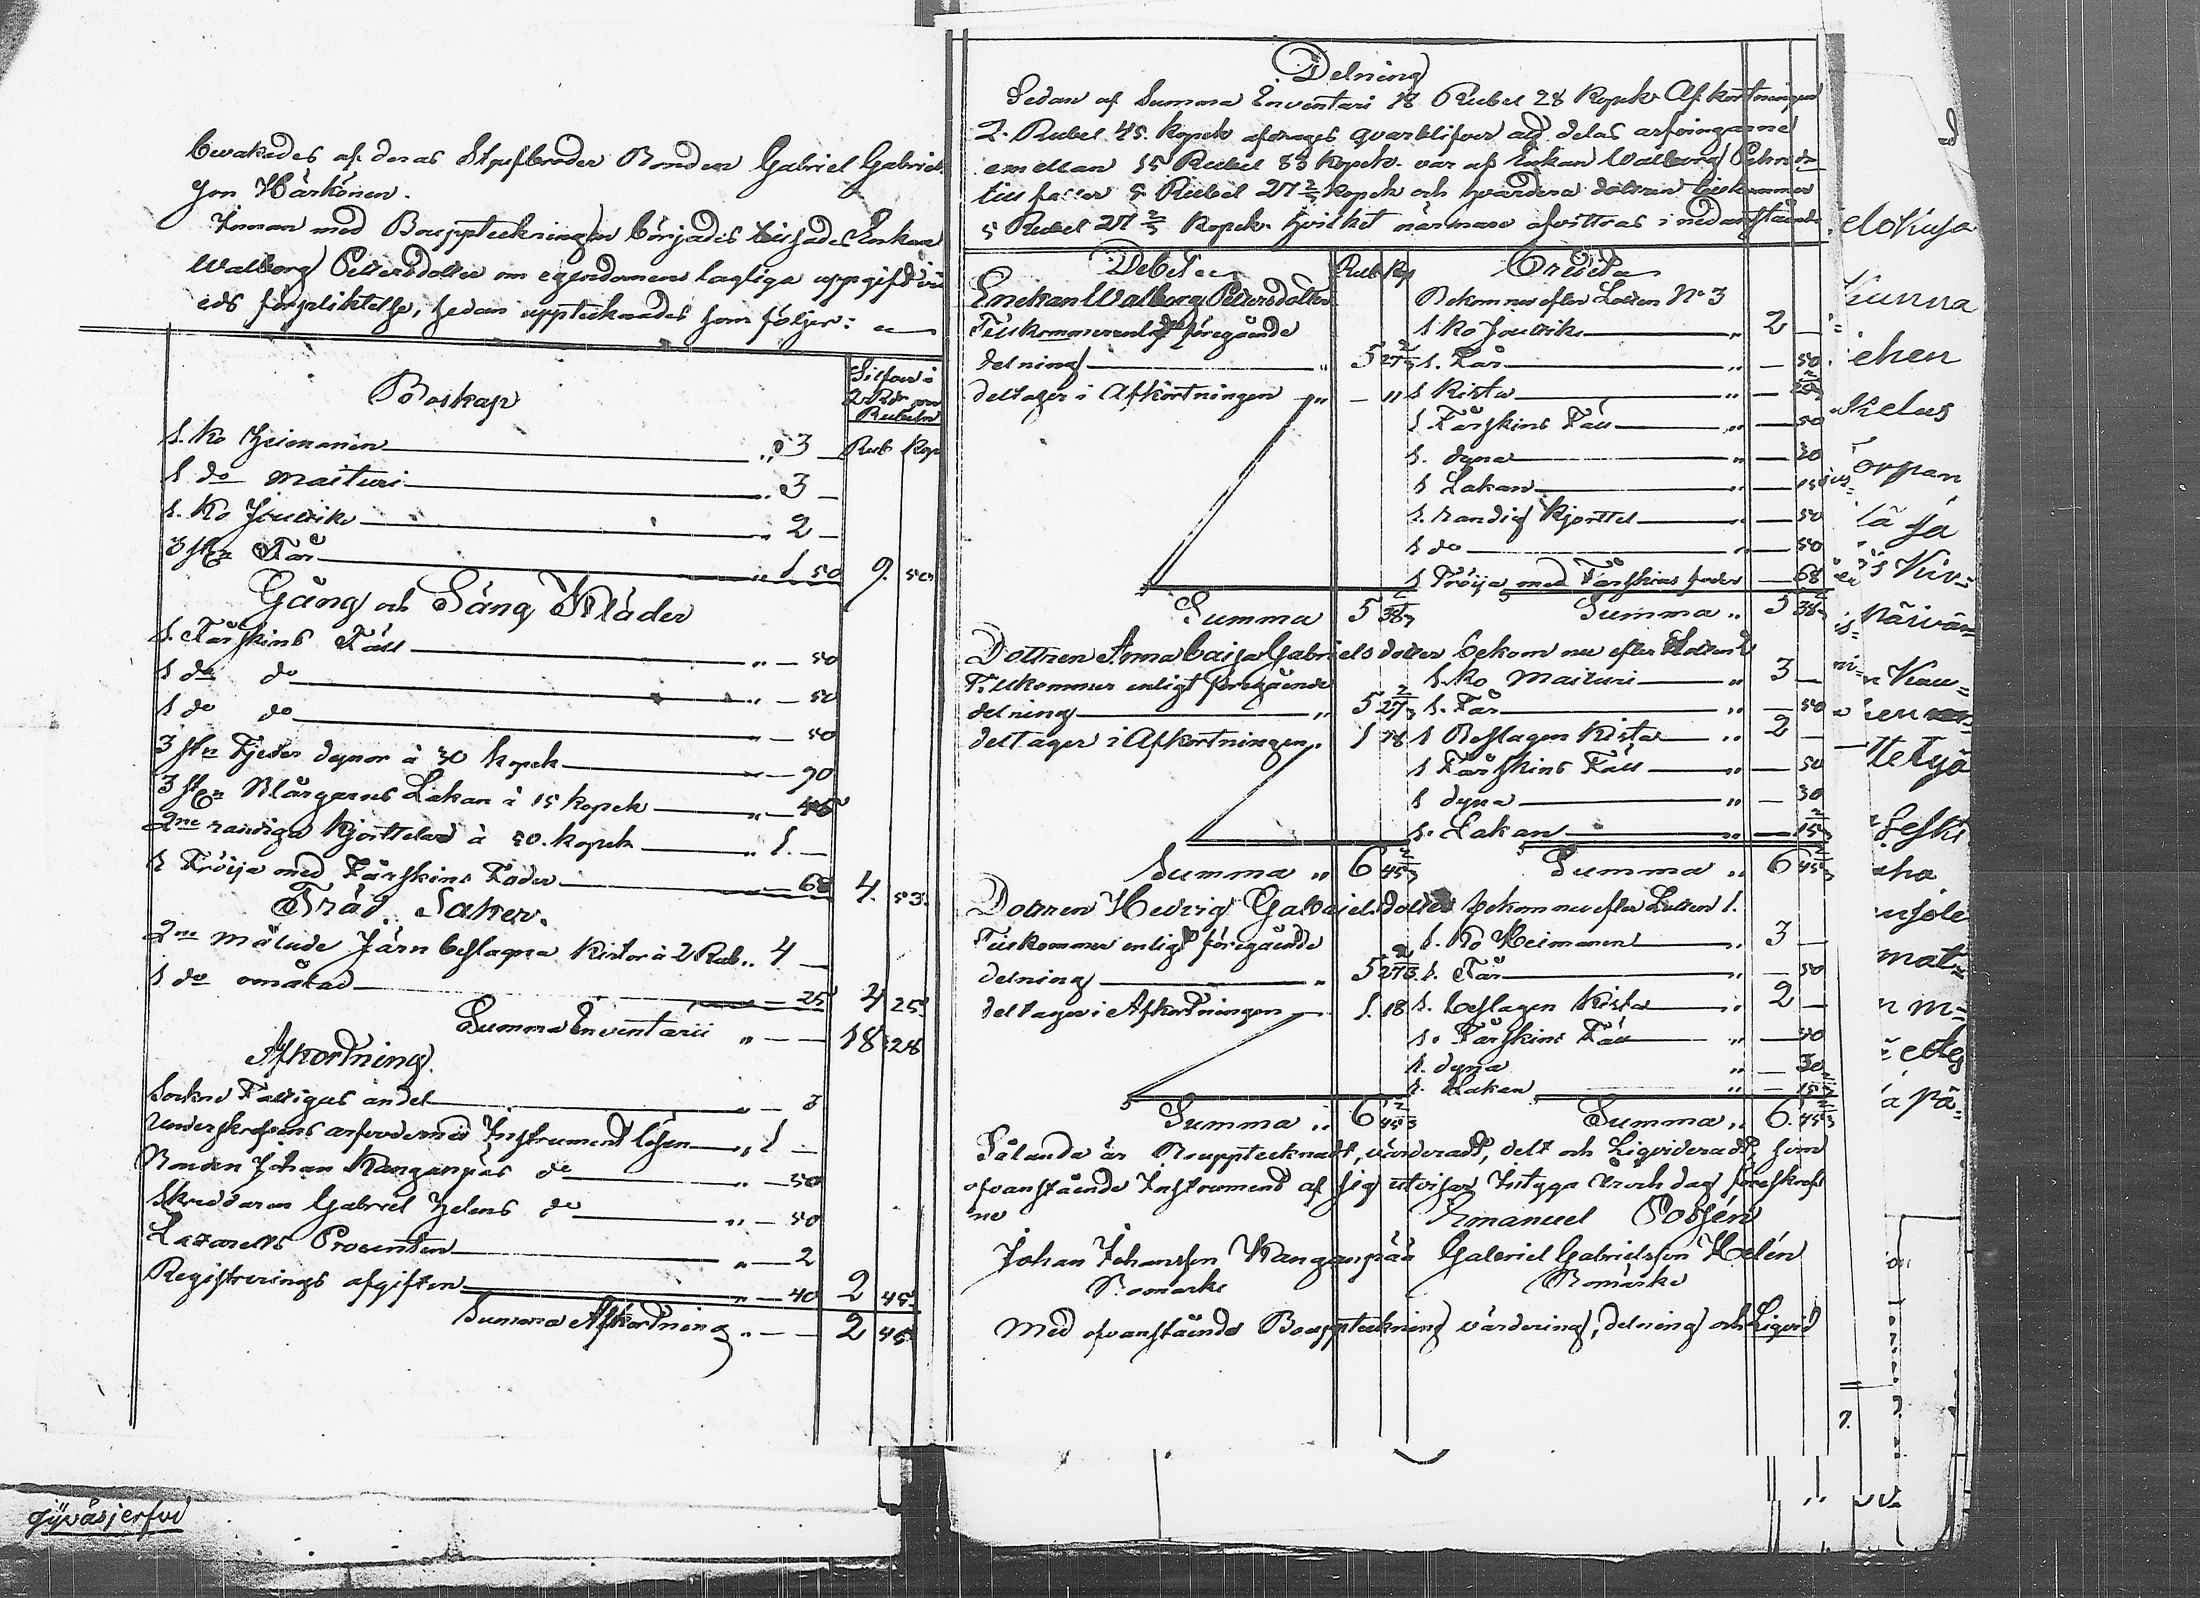 bevakades af deras Styfbroder Bonden Gabriel Gabriels
son Härkönen.
Innan med Bouppteckningen börjades tilsades Enkan
Walborg Pettersdotter om egendomens lagliga uppgift vid
eds förpliktelse, sedan upptecknades som följer:
Silfver i
Rubeln
Boskap
Rub Kop
1. Ko Heimanen " 3 —
1 do Maituri " 3 —
1. Ko Joudrik " 2 —
3 st Får " 1 50 9. 50
Gång och Säng Kläder
1. Fårskins Fäll " — 50
1 do do " — 50
1 do do " — 50
3 st Fjeder dynor à 30 kopek " — 90
3 st Blårgarns Lakan à 15 kopek " — 45
2ne randiga Kjorttelar à 50. kopek " 1. —
1 Tröija med Fårskins Foder — 68 4. 53.
Träd. Saker.
2ne målade Järn beslagna Kistor à 2 Rub. " 4 —
1 do omålad — 25 4 25.
Summa Inventarii " — — 18 28
Afkortning.
Sockne Fattigas andel " — 3
Underskrefvens arfvode med Instrument lösen " 1 —
Bonden Johan Kanganpää do " — 50
Skreddaren Gabriel Helens do " — 50
Lazaretts Procenten " — 2
Registrerings afgiften " — 40 2 45.
Summa Afkortning " — — 2 45
Jyväsjerfvi
Delning
Sedan af Summa Inventari 18 Rubel 28 Kopek Afkortningen
2. Rubel 45. kopek afdrages qvarblifver att delas arfvingarne
emellan 15 Rubel 83 kopek. var af Enkan Walborg Petters dr
tillfaller 5 Rubel 27 2/3 kopek och hvardera dottren tilkommer
5 Rubel 27 2/3 Kopek. hvilket närmare afvittras i nedanstående
Debet Rub Kop Credit
Enckan Walborg Pettersdotter Bekommer efter Lotten No 3
Tillkommer enligt föregående 1 Ko Joudrik " 2 —
delning " 5 27 2/3 1. Får " — 50
deltager i Afkortningen " — " 1 Kista " —
1 Fårskins Fäll " — 50
1. dyna " — 30
1 Lakan " — 15
1. randig Kjorttel " — 50
1 do " — 50
1 Tröija med Fårskins foder — 68
Summa 5 Summa " 5
Dottren Anna Caisa Gabriels dotter bekommer efter Lotten 2
Tillkommer enligt föregående 1. ko Maituri " 3 —
delning " 5 27 2/3 1. Får " — 50
deltager i Afkortningen " 1 18 1 Beslagen Kista " 2 —
1 Fårskins Fäll " — 50
1 dyna " — 30
1. Lakan " — 15 2/3
Summa " 6 45 2/3 Summa " 6 45 2/3
Dottren Hedvig Gabriels dotter bekommer efter Lotten 1.
Tillkommer enligt föregående 1. Ko Heimanen " 3 —
delning " 5 27 2/3 1. Får " — 50
deltager i Afkortningen 1. 18 1. beslagen Kista " 2 —
1. Fårskins Fäll " — 50
1. dyna " — 30
1. Lakan " — 15 2/3
Summa " 6 45 2/3 Summa " 6. 45 2/3
Sålunda är Bouptecknadt, värderadt, delt och Liqvideradt, som
ofvanstående Instrument af sig utvisar Intyga År och dag föreskref
ne
Emanuel
Johan Johansson Kanganpää Gabriel Gabrielsson Helén
Bomärke Bomärke
Med ofvanstående Bouppteckning värdering, delning och Liqvid